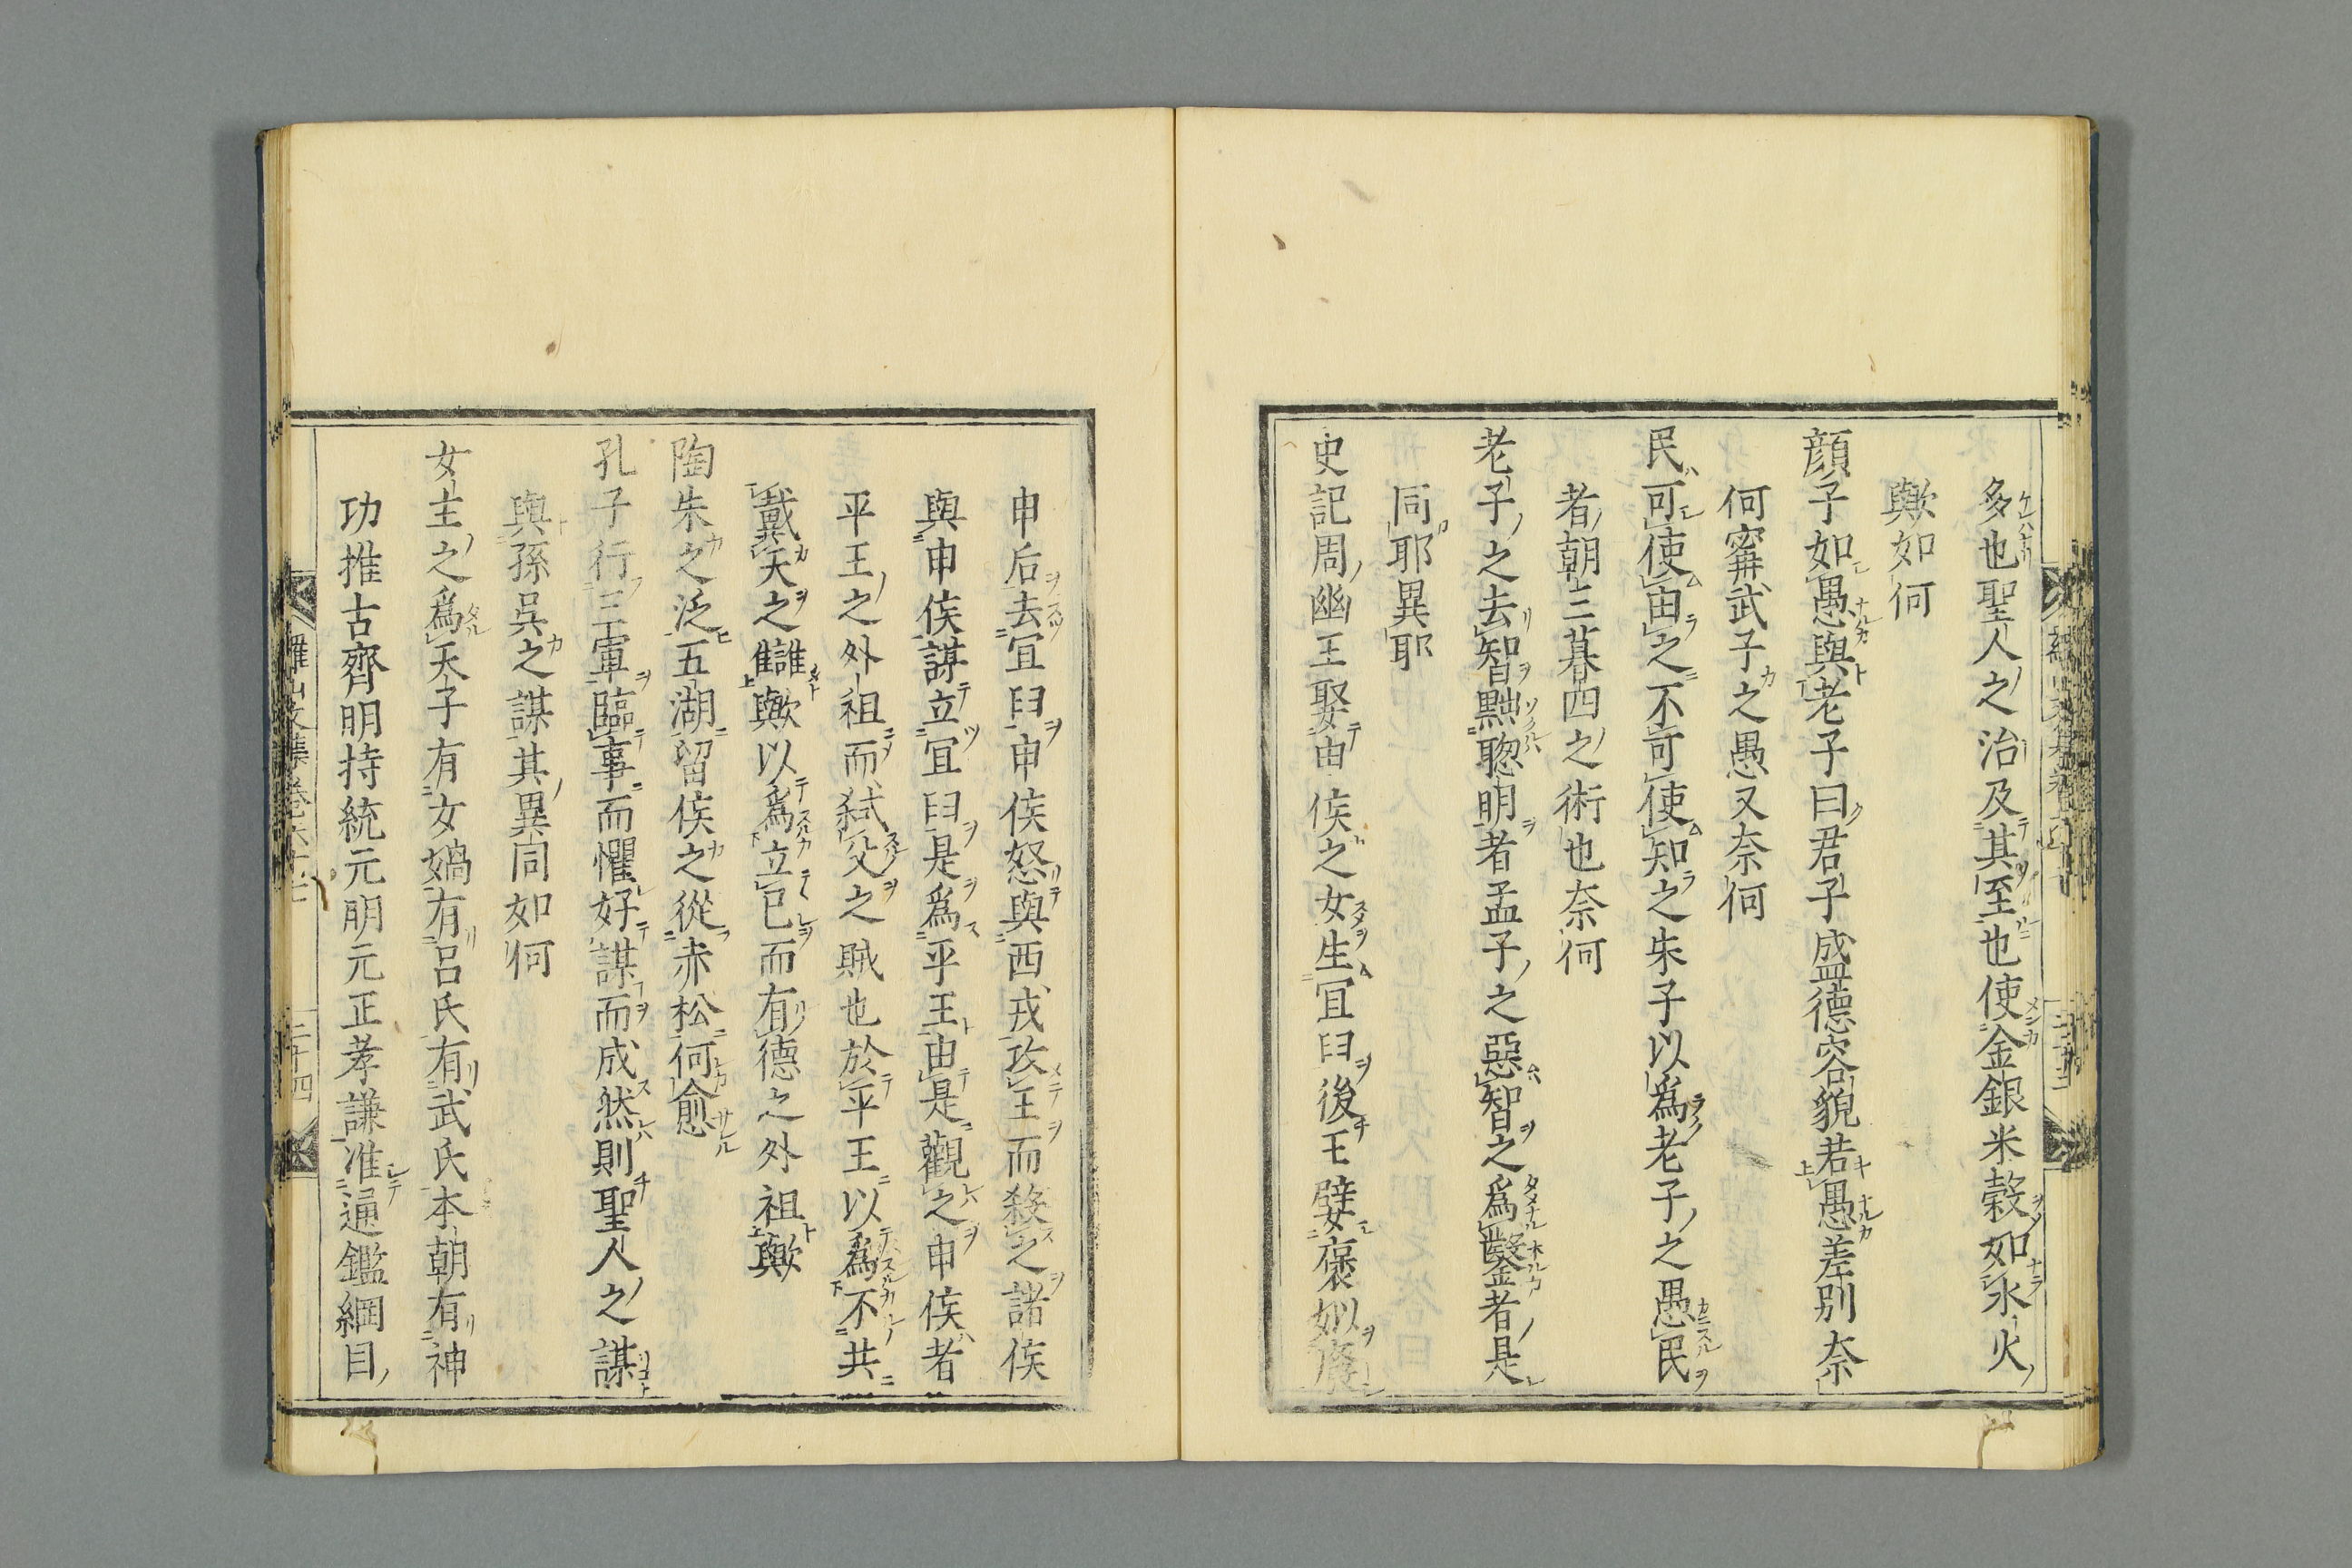 多也聖人之治及其至也使金銀米穀如水火
歟如何
顔子如愚與老子曰君子盛德容貌若愚差別奈
何甯武子之愚又奈何
民可使由之不可使知之朱子以爲老子之愚民
者朝三暮四之術也奈何
老子之去智黜聰明者孟子之惡智之爲鑿者是
同耶異耶
史記周幽王娶申侯之女生宜臼後王嬖褒姒廢
申后去宜臼申侯怒與西戎攻王而殺之諸侯
與申侯謀立宜臼是爲平王由是觀之申侯者
平王之外祖而弑父之賊也於平王以爲不共
戴天之讎歟以爲立己而有德之外祖歟
陶朱之泛五湖留侯之從赤松何愈
孔子行三軍臨事而懼好謀而成然則聖人之謀
與孫吳之謀其異同如何
女主之爲天子有女媧有呂氏有武氏本朝有神
功推古齊明持統元明元正孝謙准通鑑綱目
羅山文集卷六十七
二十四